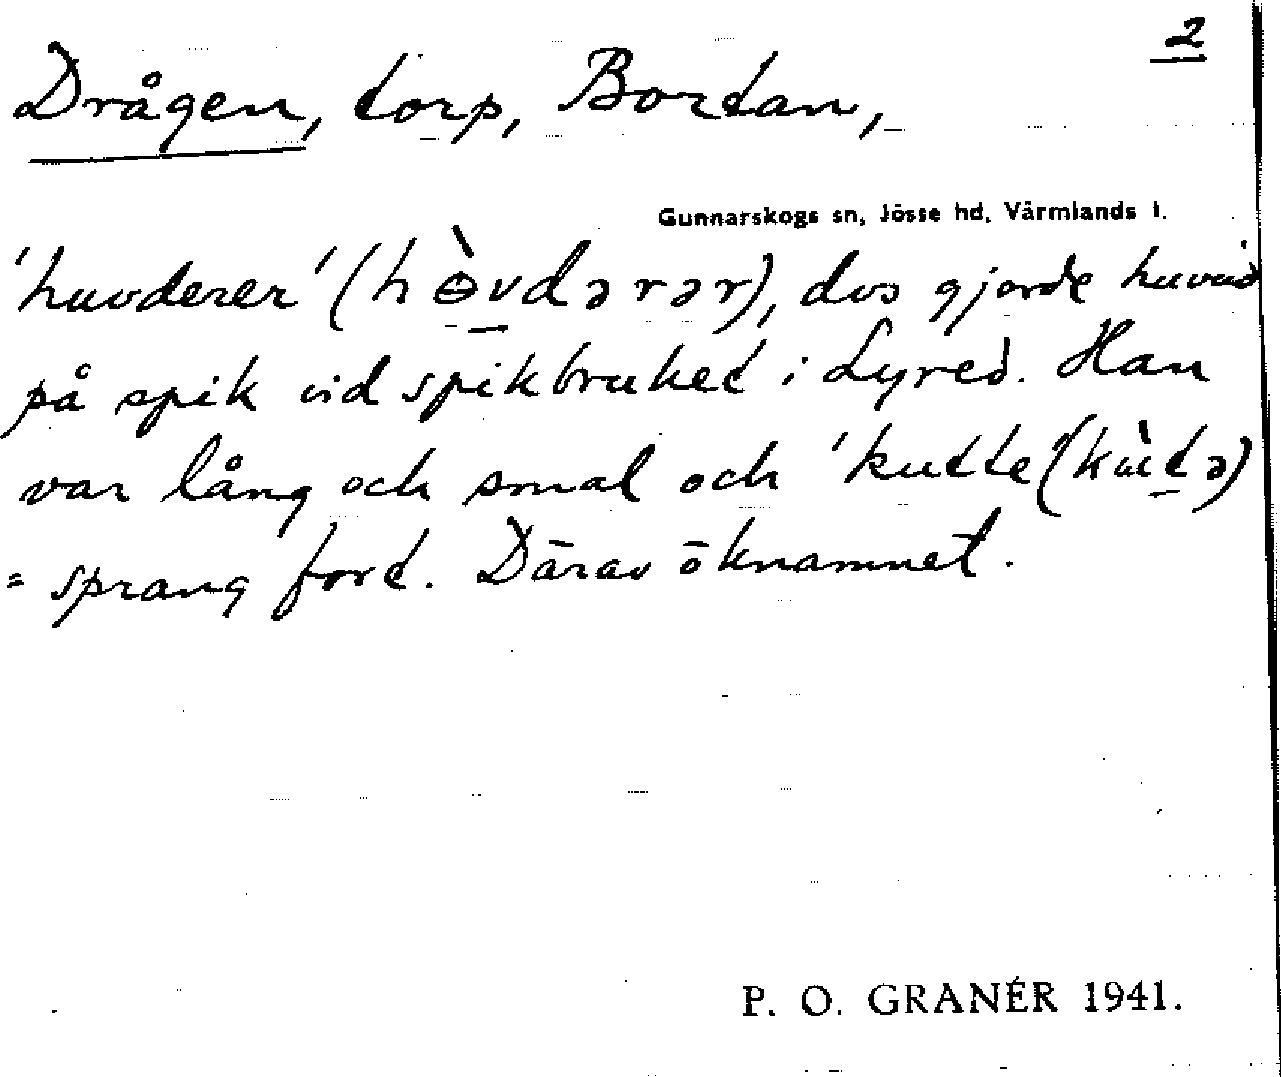 2
Drågen, torp, Bortan,
Gunnarskogs sn, Jösse hd, Värmlands l.
'huvderer' (hɵ̀vdərər), dvs gjorde huvud
på spik vid spikbruket i Lyred. Han
var lång och smal och 'kutte' (kùtə)
= sprang fort. Därav öknamnet.
P. O. GRANÉR 1941.